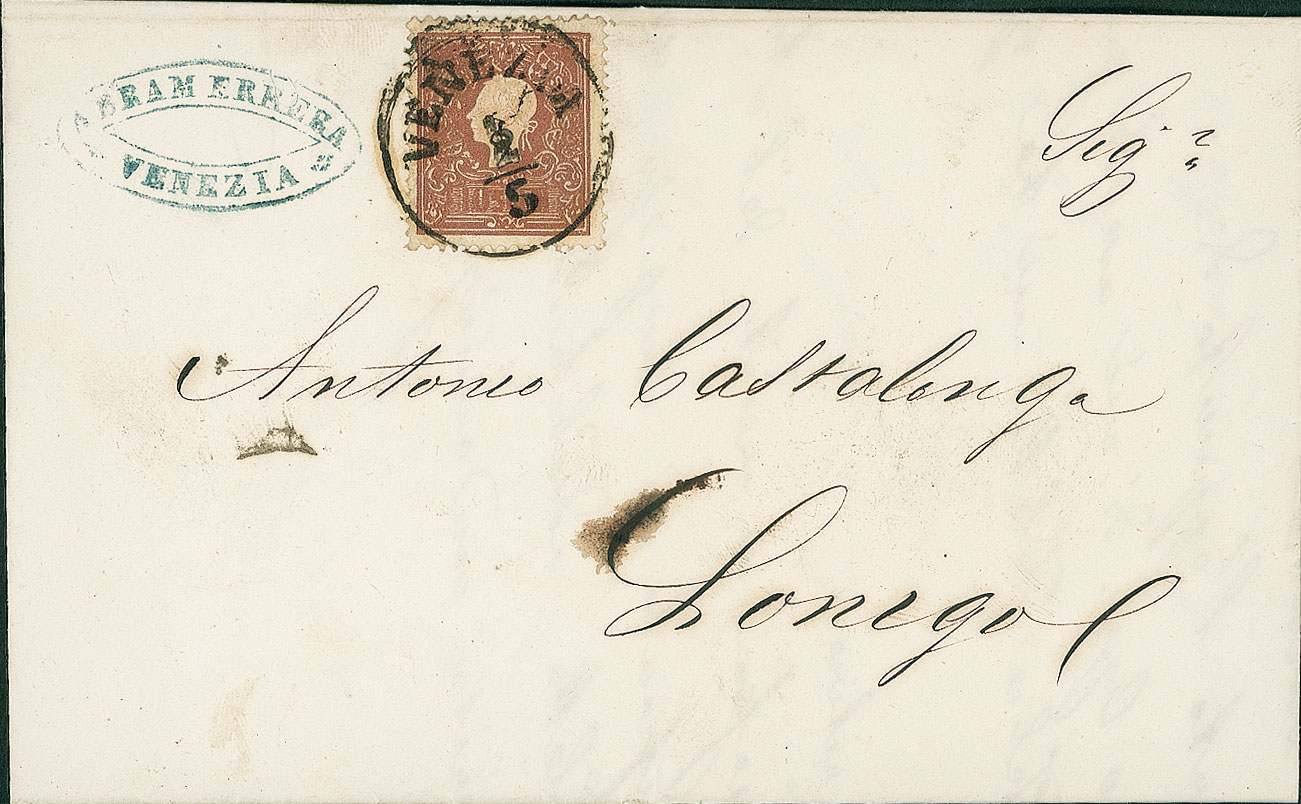 ABRAM ERRERA
VENEZIA
VENEZIA
Sig.r
Antonio Castalonga
Lonigo